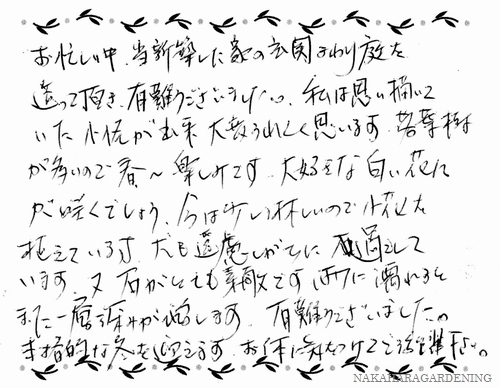 お忙しい中、当新築した家の玄関まわり庭を
造って頂き、有難うございました。私は思い描いて
いた小径が出来大変うれしく思います。落葉樹
が多いので春〜楽しみです。大好きな白い花に
が咲くでしょう。今は少し淋しいので小花を
植えています。犬も遠慮しがちに過して
います。又石がとても素敵です。雨に濡れると
また一層深みが増します。有難うございました。
本格的な冬を迎えます。お体に気をつけてご活躍下さい。
NAKAHARAGARDENING